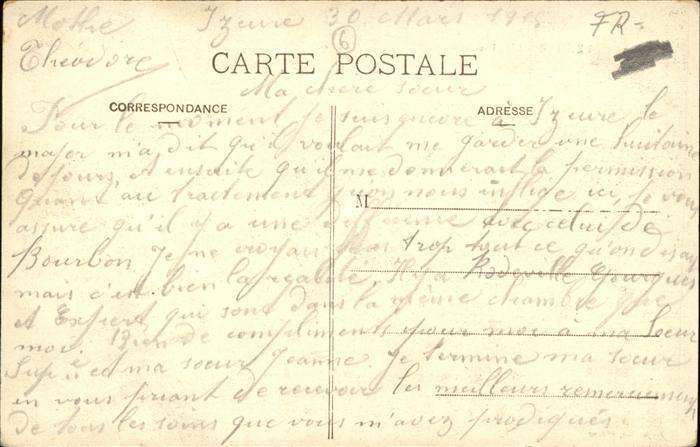 Mothe Izeure 30 Mars 1915 FR-
Théodore
6
CARTE POSTALE
Ma chere soeur
CORRESPONDANCE
ADRESSE
Pour le moment je suis encore à Izeure le
major m'a dit qu'il voulait me garder une huitaine
de jours, et ensuite qu'il me donnerait la permission
Quant au traitement qu'on nous inflige ici, je vous
M
assure qu'il y a une différence avec celui de
Bourbon, Je ne croyais pas trop tout ce qu'on disait
mais c'est bien la réalité, Il y a Gourgues
et qui sont dans la même chambre que
moi. Bien de compliments pour moi à ma Soeur
Sup et ma soeur Jeanne. Je termine ma soeur
en vous priant de recevoir les meilleurs remerciements
de tous les soins que vous m'avez prodigués.